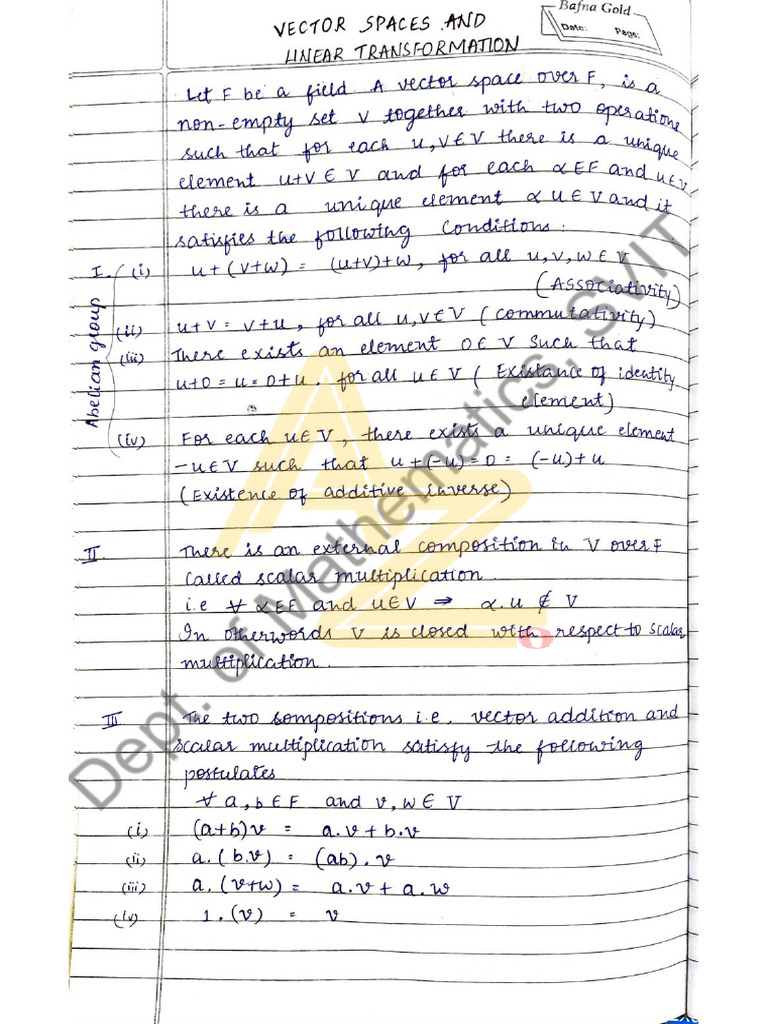 VECTOR SPACES AND
LINEAR TRANSFORMATION
Bafna Gold
Date: Page:
Let F be a field. A vector space over F, is a
non-empty set V together with two operations
such that for each u,v∈V there is a unique
element u+v∈V and for each α∈F and u∈V
there is a unique element αu∈V and it
satisfies the following conditions:
I. (i) u+(v+w) = (u+v)+w, for all u,v,w∈V
(Associativity)
(ii) u+v = v+u, for all u,v∈V (commutativity)
(iii) There exists an element 0∈V such that
u+0=u=0+u. for all u∈V (Existance of identity
element)
(iv) For each u∈V, there exists a unique element
-u∈V such that u+(-u)=0=(-u)+u
(Existence of additive inverse)
Abelian group
II There is an external composition in V over F
called scalar multiplication.
i.e ∀ α∈F and u∈V ⇒ α.u ∉ V
In otherwords V is closed with respect to scalar
multiplication.
III The two sompositions i.e. vector addition and
scalar multiplication satisfy the following
postulates
∀ a,b∈F and v,w∈V
(i) (a+b)v = a.v+b.v
(ii) a.(b.v) = (ab).v
(iii) a.(v+w) = a.v+a.w
(iv) 1.(v) = v
Dept. of Mathematics, SVIT